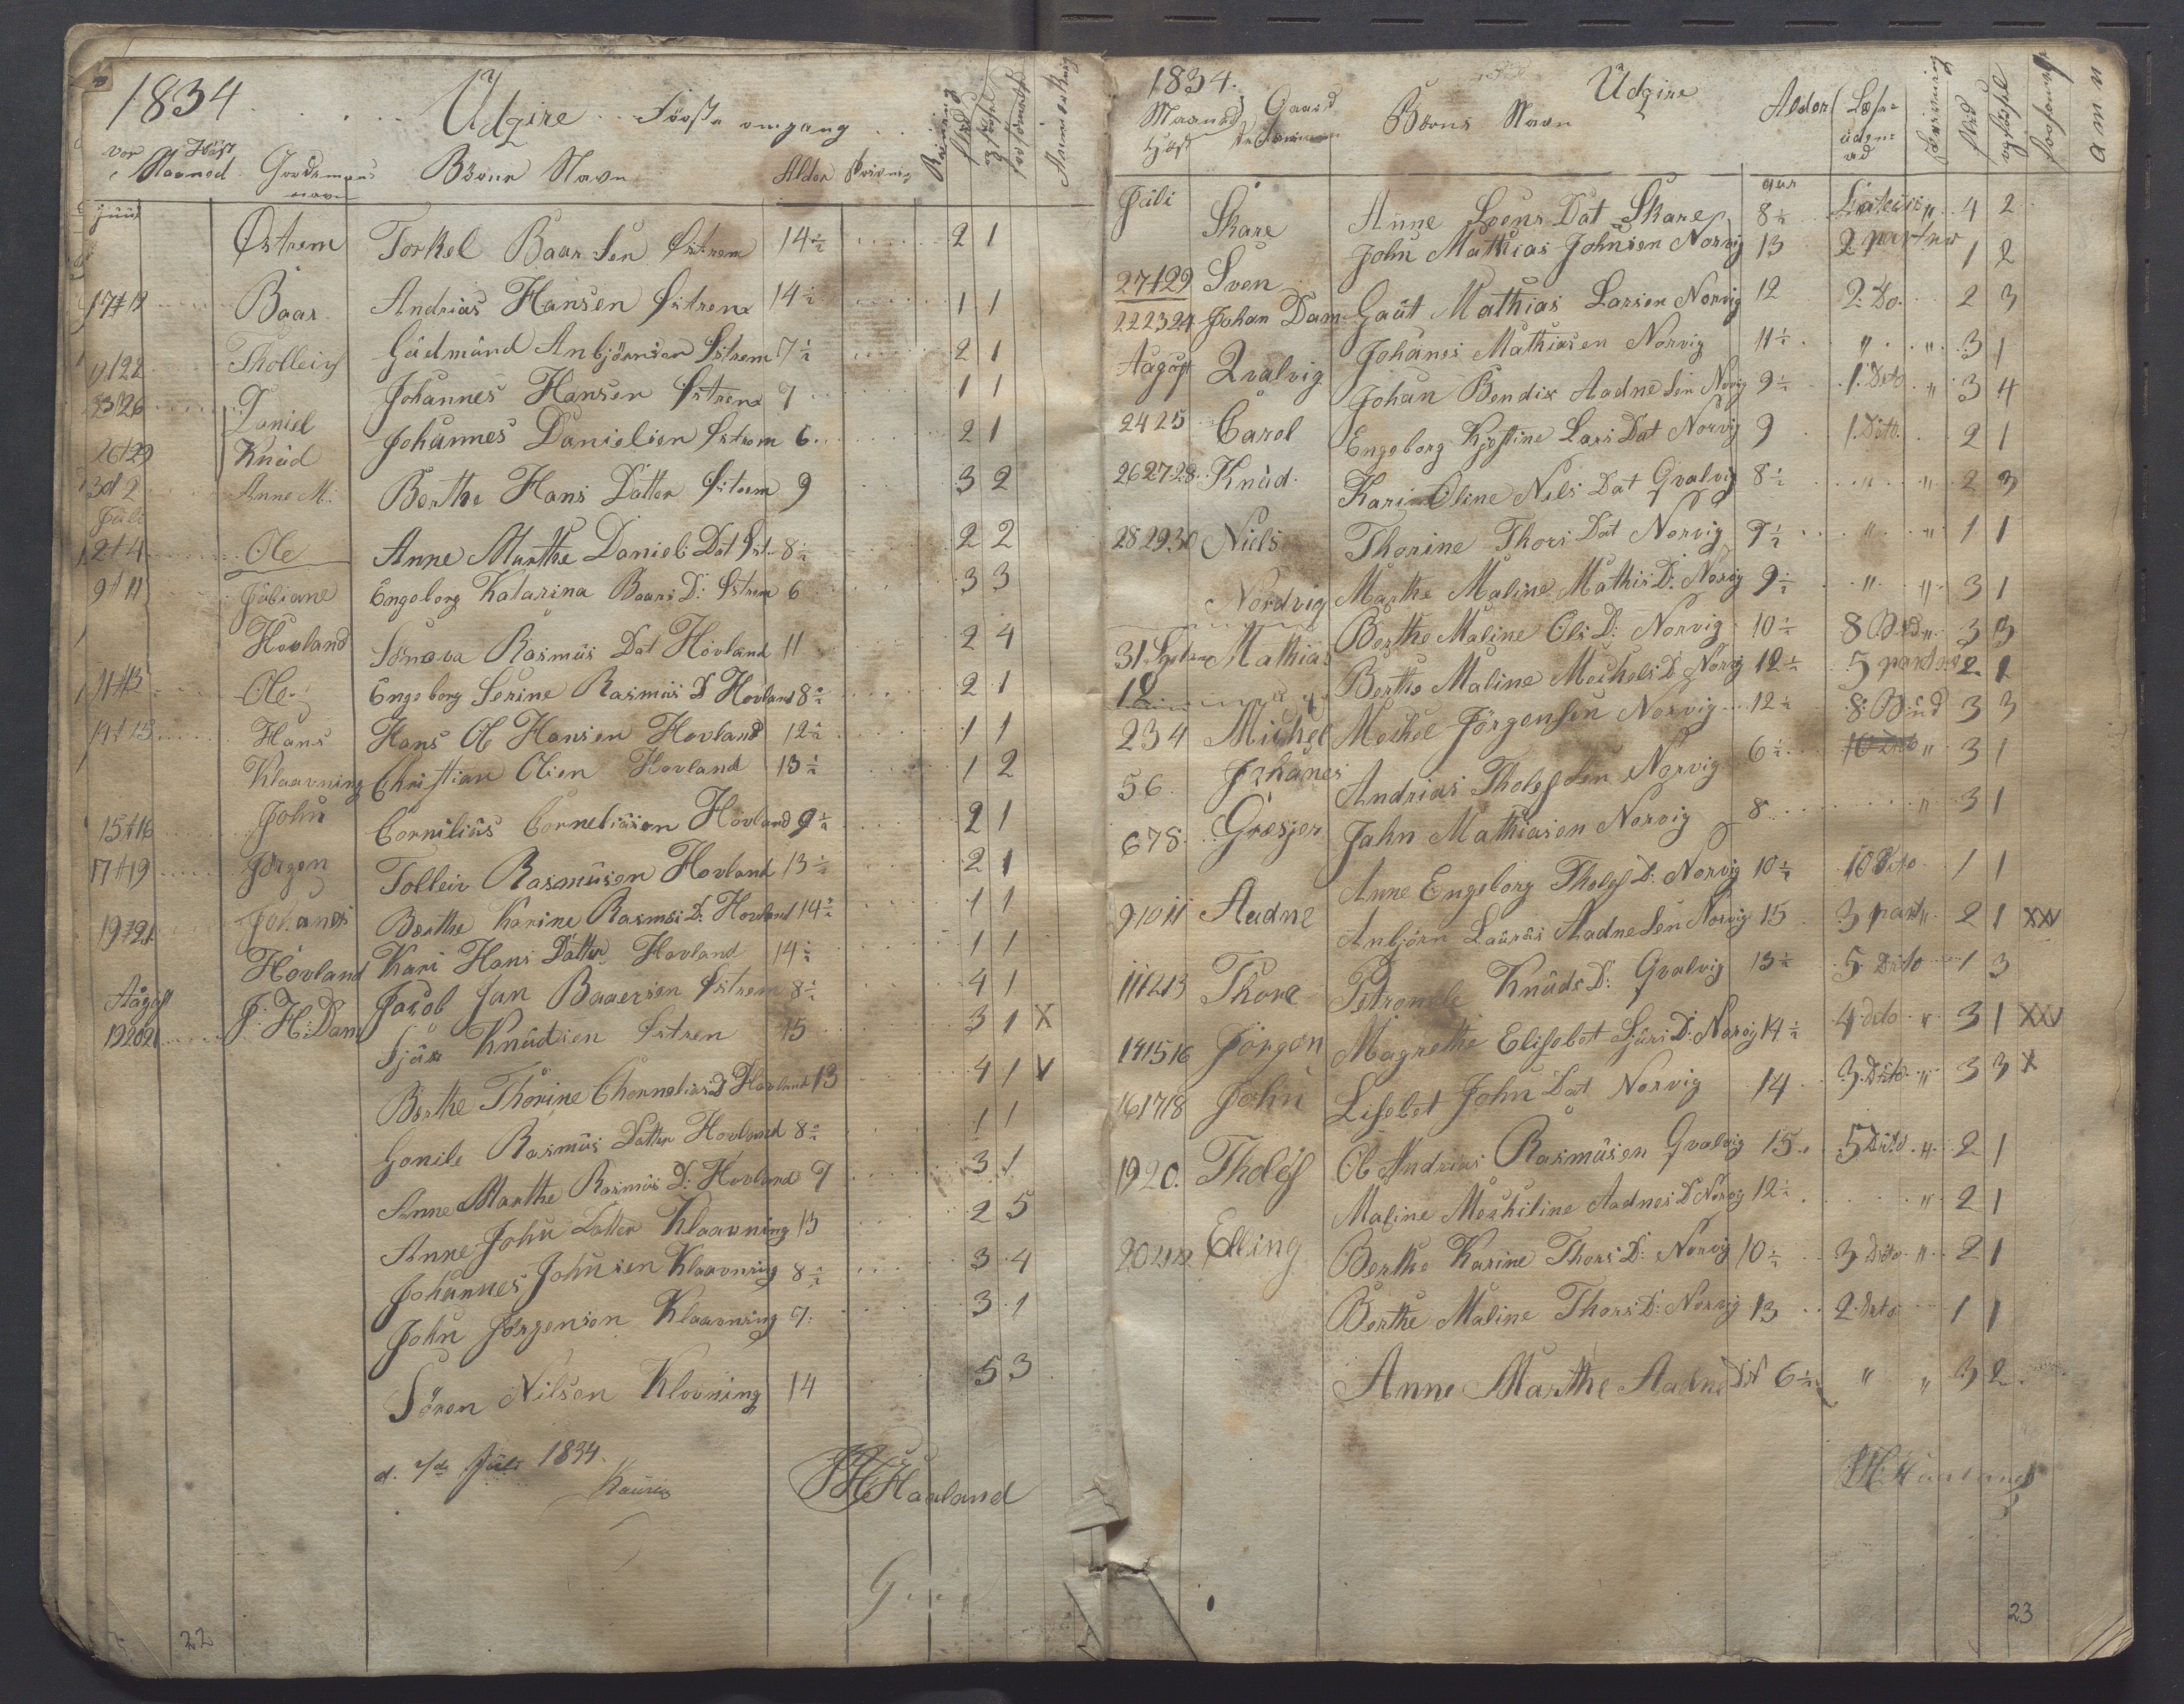 1834. Udgire Første omgang
Vor Høst
Maaned Gordsmens navn Börne Navn Alder Skrivning flid og forsømelse
Juni
Østrem Torkel Baarsen Østrem 14½ 2 1
17 t 19 Baar Andrias Hansen Østrem 14½ 1 1
19 t 22 Tholleiv Gudmund Anbjörnsen Østrem 7½ 2 1
23 t 26 Johannes Hansen Østrem 7 1 1
Daniel Johannes Danielsen Østrem 6 2 1
26 t 29 Knud
30 t 2 Anne M: Berthe Hans Datter Østrem 9 3 2
Juli
2 t 4 Ole Anne Marthe Daniels Dat Øst. 8½ 2 2
9 t 11 Jubiane Engeborg Katarina Baars D: Østrem 6 3 3
Hovland Sönava Rasmus Dat Hovland 11 2 4
11 t 13 Ole Engeborg Serine Rasmus D Hovland 8½ 2 1
14 t 15 Hans Hans Ol Hansen Hovland 12½ 1 1
Klaavning Christian Olsen Hovland 13½ 1 2
15 t 16 John Cornilius Corneliusen Hovland 9½ 2 1
17 t 19 Jörgen Tolleiv Rasmusen Hovland 13½ 2 1
19 t 21 Johanes Berthe Karine Rasmus D: Hovland 14½ 1 1
Hovland Kari Hans Datter Hovland 14½ 1 1
August J: H: Dam Jacob Jan Baaersen Østrem 8½ 4 1
192021 Sjur Knudsen Østren 15 3 1 X
Berthe Thorine Chornelius D Hovland 13 4 1 V
Gonile Rasmus Datter Hovland 8½ 1 1
Anne Marthe Rasmus D: Hovland 7 3 1
Anne John Datter Klaavning 13 2 5
Johannes Johnsen Klaavning 8½ 3 4
John Jörgensen Klaavning 7: 3 1
Sören Nilsen Klovning 14 5 3
d. Juli 1834.
Haaland
22
1834. Udgire
Maaned Gaard Börns Navn Alder Læse
Høst
Juli aar
Skare Anne Svens Dat Skare 8½ 4 2
27 t 29 Sven John Mathias Johnsen Norvig 13 2 parter 1 2
222324 Johan Dam Gaut Mathias Larsen Norvig 12 2 Do. 2 3
August Qvalvig Johanes Mathiasen Norvig 11½ " " 3 1
Johan Bendix Aadnesen Norvig 9½ 1. Dito " 3 4
2425 Carol Engeborg Kjestine Lars Dat Norvig 9 1. Dito. 2 1
262728. Knud. Kari Oline Nils Dat Qvalvig 8½ " " 2 3
282930 Niels Thorine Thors Dat Norvig 7½ " " 1 1
Nordvig Marthe Maline Mathis D: Norvig 9½ " " 3 1
31 Mathias Berthe Maline Ols D: Norvig 10½ 8 Bud " 3 3
1 2 Berthe Maline Mechels D: Norvig 12½ 5 parter 2 1
234 Michel Mechel Jörgensen Norvig 12½ 8. Bud 3 3
56. Johanes Andrias Tholessen Norvig 6½ 10 Dito " 3 1
678. Græsjer Jahn Mathiasen Norvig 8 " 3 1
Anne Engeborg Tholes D: Norvig 10½ 10 Dito 1 1
91011 Aadne Anbjörn Lauras Aadnesen Norvig 15 3 part " 2 1 XXV
111213 Thore Petronele Knuds D: Qvalvig 13½ 5 Dito 1 3
141516 Jörgen Magrethe Elisebet Sjurs D: Norvig 14½ 4 dito " 3 1 XXV
161718 John Lisebet John Dat Norvig 14 3. Dito " 3 3 X
1920. Tholes Ol Andrias Rasmusen Qvalvig 15. 5 Dito " 2 1
Maline Mechiline Aadnes D Norvig 12½ " 2 1
202122 Elling Berthe Karine Thors D: Norvig 10½ 3 Dito " 2 1
Berthe Maline Thors D: Norvig 13 2. Dito 1 1
Anne Marthe Aadne Dat 6½ " " 3 2
23